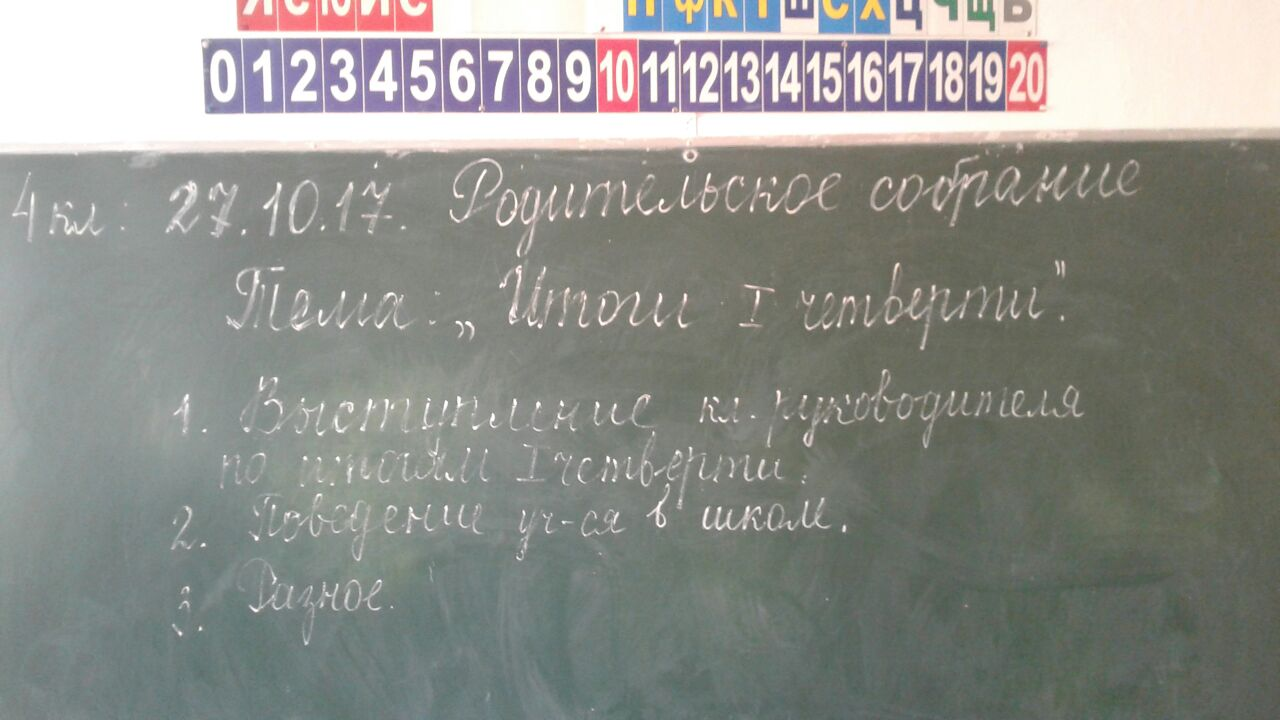 Я Ё Ю И Е
П Ф К Т Ш С Х Ц Ч Щ Ь
0 1 2 3 4 5 6 7 8 9 10 11 12 13 14 15 16 17 18 19 20
4 кл: 27.10.17. Родительское собрание
Тема: „Итоги I четверти".
1. Выступление кл. руководителя
по итогам I четверти.
2. Поведение уч-ся в школе.
3. Разное.